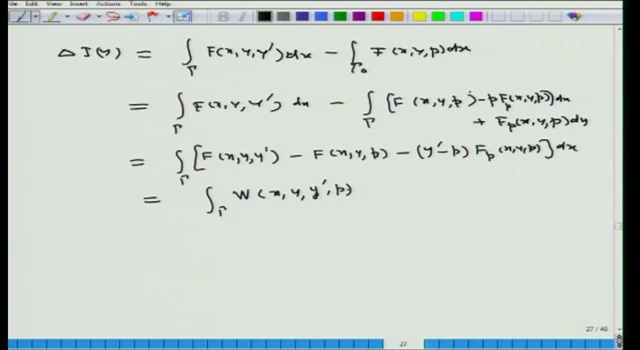 File Edit View Insert Actions Tools Help
Δ J(y) = ∫_Γ F(x,y,y')dx − ∫_Γ₀ F(x,y,p)dx
= ∫_Γ F(x,y,y') dx − ∫_Γ [F(x,y,p) − p F_p(x,y,p)]dx
+ F_p(x,y,p)dy
= ∫_Γ [F(x,y,y') − F(x,y,p) − (y'−p) F_p(x,y,p)]dx
= ∫_Γ W(x,y,y',p)
27 / 40
27